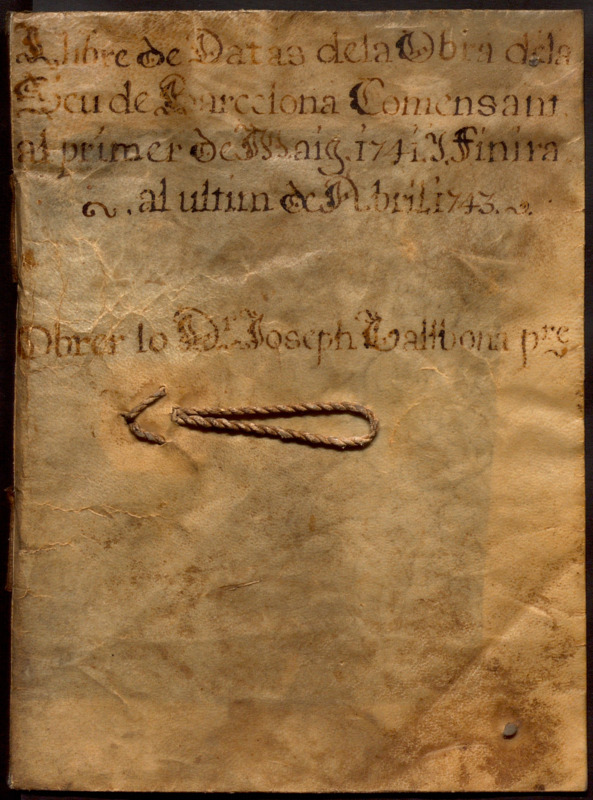 Llibre de Datas dela Obra dela
Seu de Barcelona Comensant
al primer de Maig. 1741. I Finira
al ultim de Abril. 1743.
Obrer lo Dr. Joseph Vallbona pre